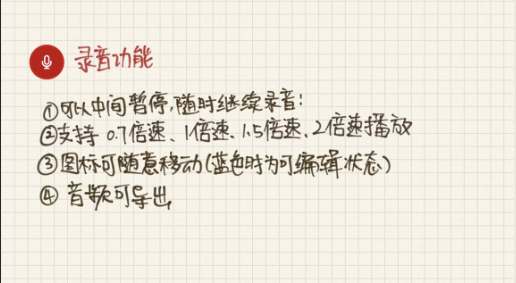 录音功能
①可以中间暂停,随时继续录音:
②支持 0.7倍速、1倍速、1.5倍速、2倍速播放
③图标可随意移动(蓝色时为可编辑状态)
④ 音频可导出